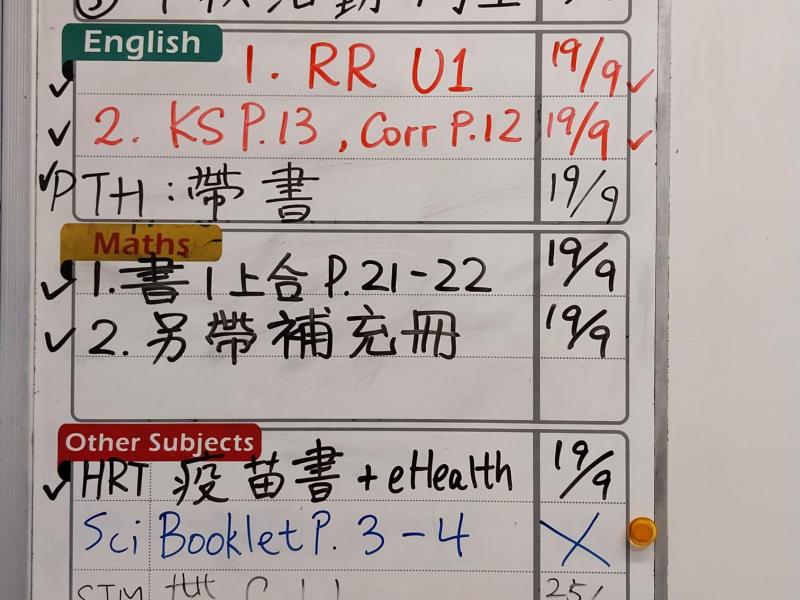 English
1. RR U1 19/9
2. KS P.13 , Corr P.12 19/9
PTH : 帶書 19/9
Maths
1. 書1上合 P.21-22 19/9
2. 另帶補充冊 19/9
Other Subjects
HRT 疫苗書 + eHealth 19/9
Sci Booklet P. 3-4